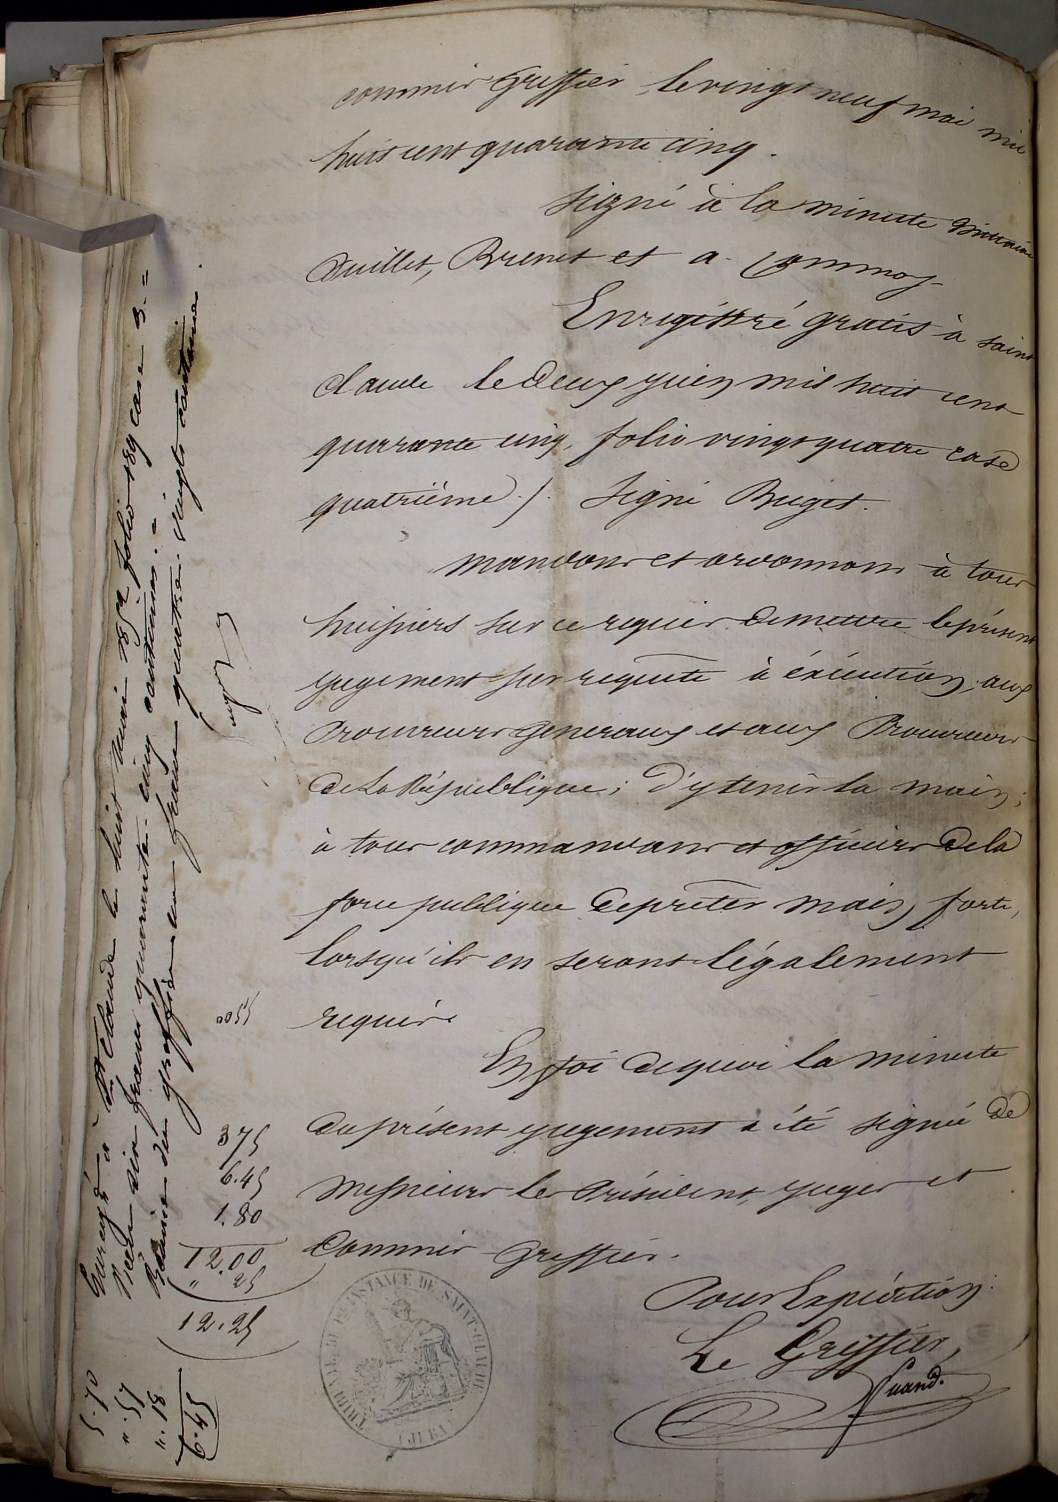 commis Greffier, le vingt neuf mai mil
huit cent quarante cinq.
Signé à la minute
Duillet, Brenet et a. Commoy
Enregistré gratis à saint
claude le deux juin mil huit cent
quarante cinq, folio vingt quatre case
quatrième ./. Signé Buget.
mandons et ordonnons à tous
huissiers sur ce requis de mettre le présent
jugement sur requête à éxécution, aux
Procureurs generaux et aux Procureurs
de La République; d'y tenir la main;
à tous commandans et officiers de la
force publique de prêter main forte,
lorsqu'ils en seront légalement
requis.
En foi de quoi la minute
du présent jugement à été signée de
messieurs les Président, juges et
Commis Greffier.
Pour Expédition.
Le Greffier,
Enregé à St Claude le huit Mai 1852 folio 189 case 3. =
Reçu dix francs quarante-cinq centimes. =
Remise du greffier un franc quatre-vingts centimes.
3 75
6.45
1.80
12.00
" .25
12.25
5.70
" .57
" .18
6.45
TRIBUNAL DE 1RE INSTANCE DE SAINT-CLAUDE
(JURA)